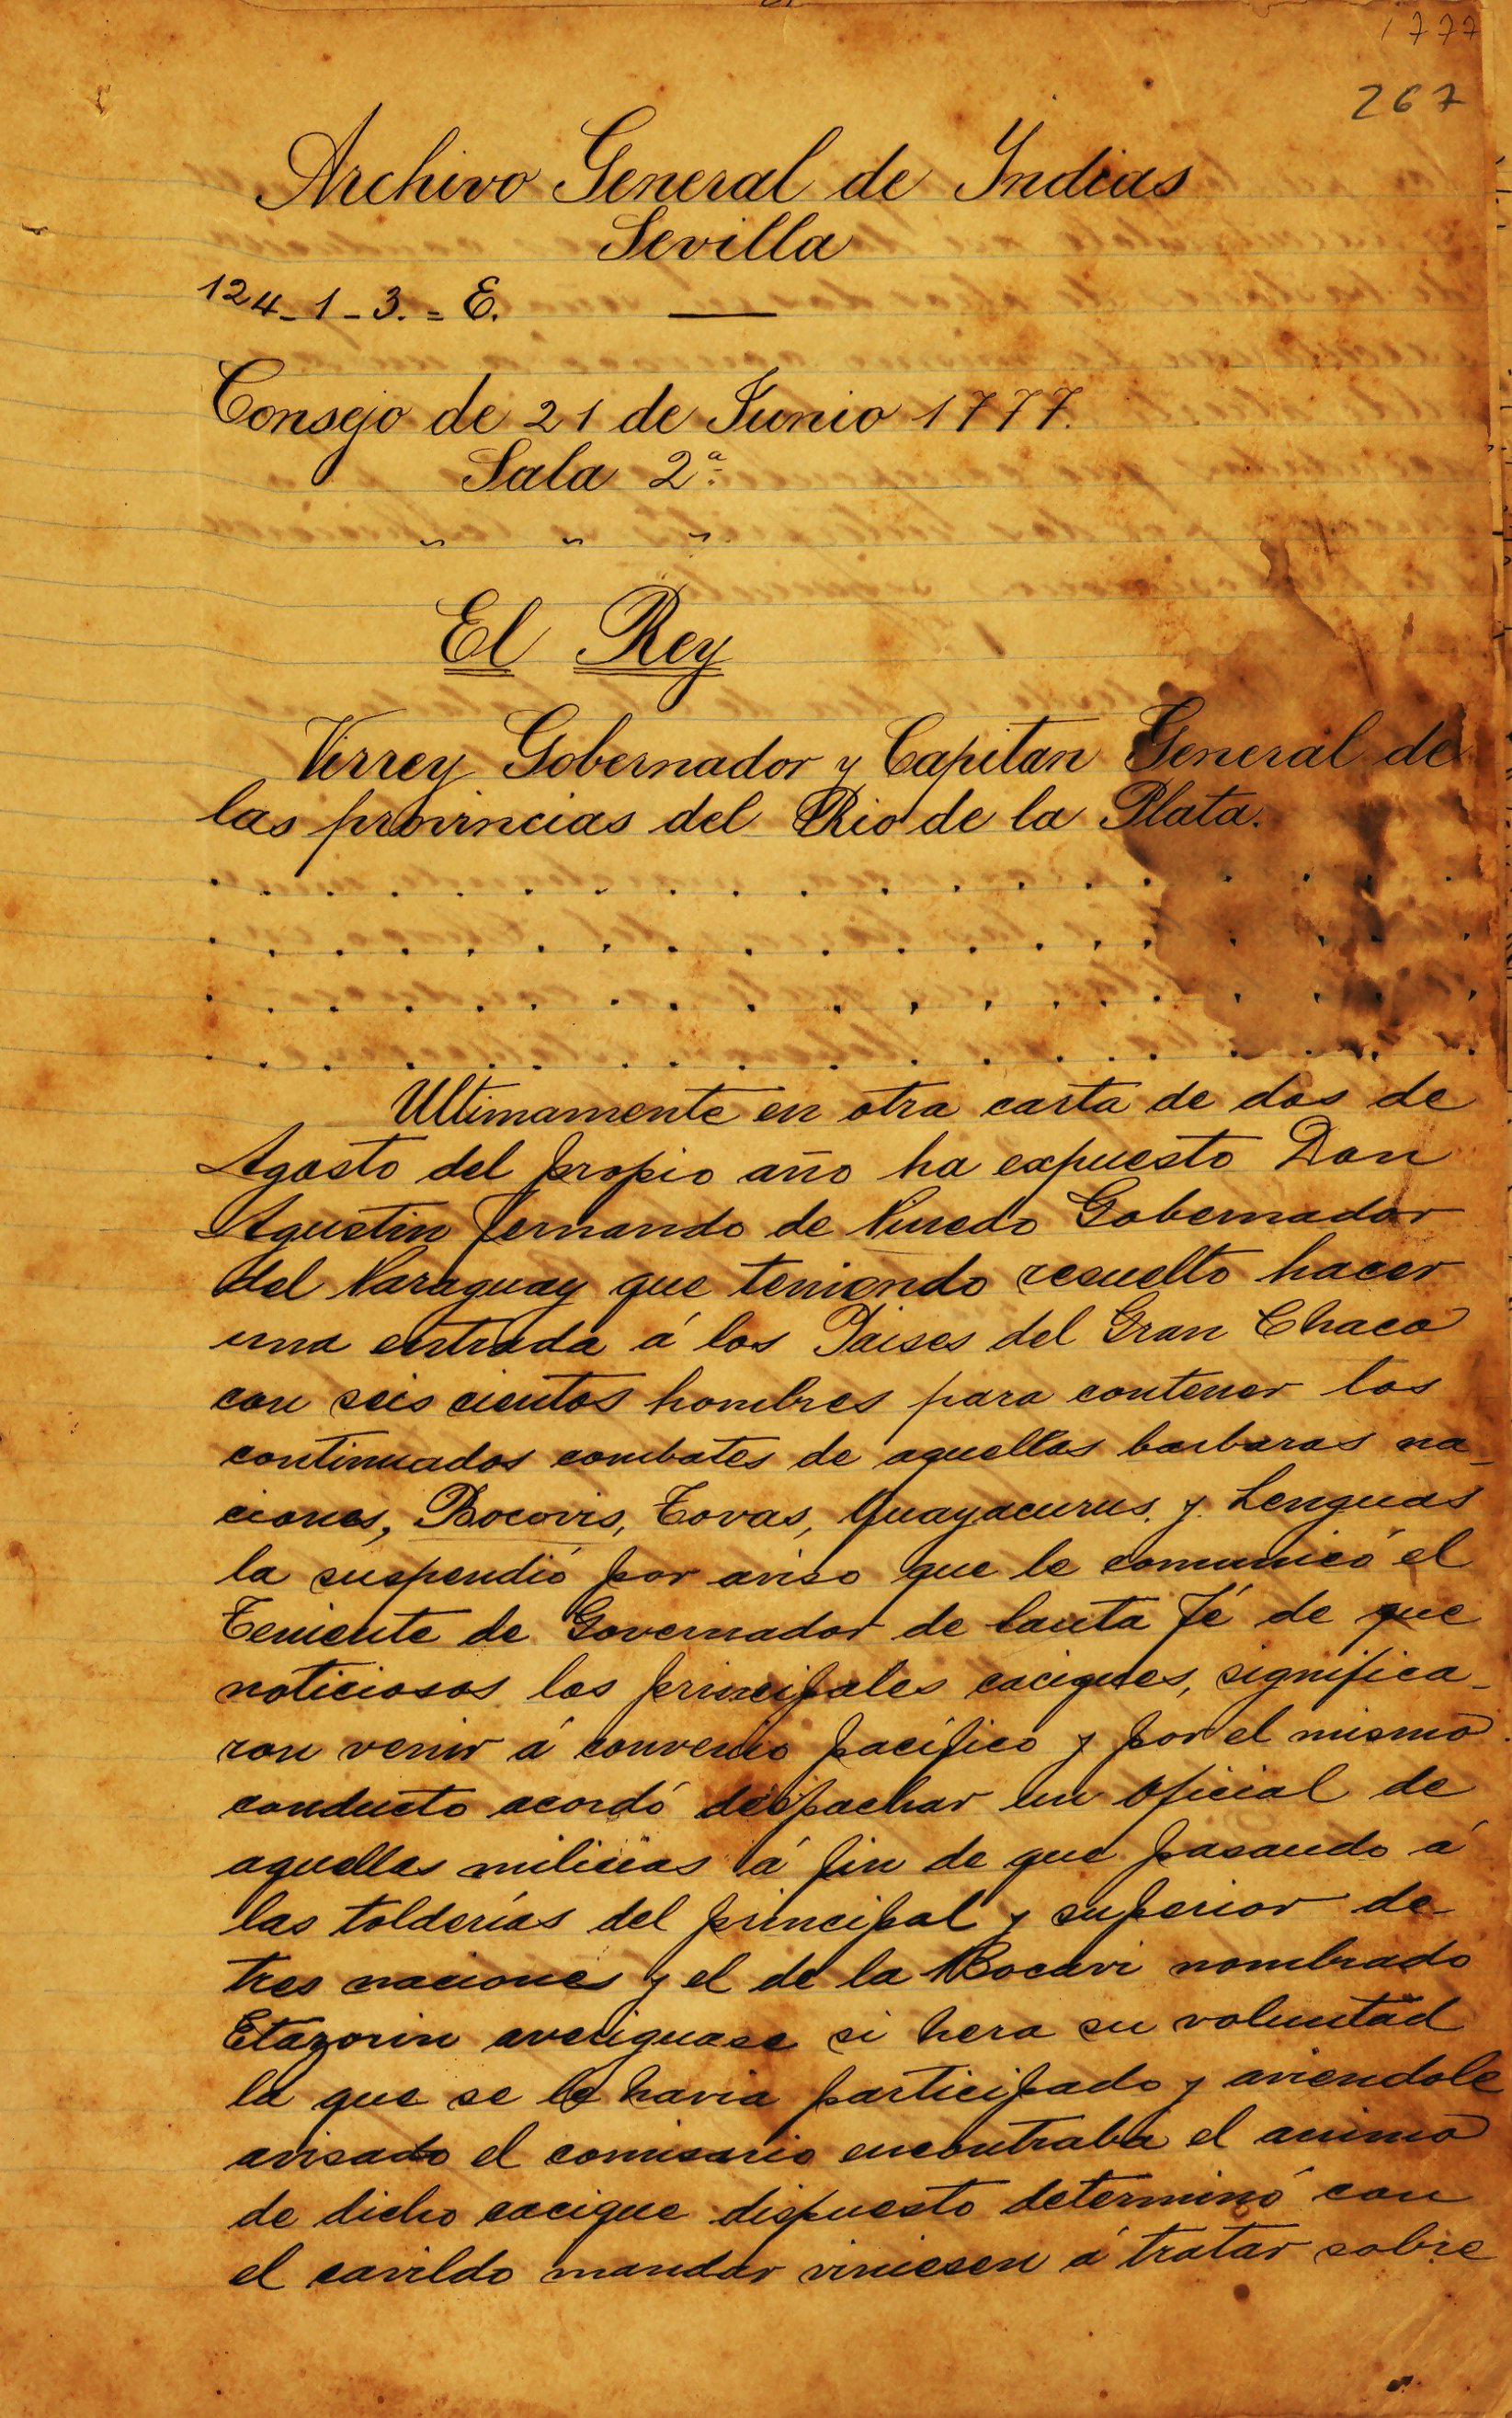 1777
267
Archivo General de Indias
Sevilla
124-1-3.=E.
Consejo de 21 de Junio 1777.
Sala 2ª
El Rey
Virrey Gobernador y Capitan General de
las provincias del Rio de la Plata.
. . . . . . . . . . . . . . . . . .
. . . . . . . . . . . . . . . . . .
. . . . . . . . . . . . . . . . . .
. . . . . . . . . . . . . . . . . .
Ultimamente en otra carta de dos de
Agosto del propio año ha expuesto Don
Agustin Fernando de Pinedo Gobernador
del Paraguay que teniendo resuelto hacer
una entrada á los Paises del Gran Chaco
con seis cientos hombres para contener los
continuados combates de aquellas barbaras na-
ciones, Bocovis, Tovas, Guayacurus, y Lenguas
la suspendió por aviso que le comunicó el
Teniente de Governador de Santa Fé de que
noticiosos los principales caciques, significa-
ron venir á convenio pacífico y por el mismo
conducto acordó despachar un Oficial de
aquellas milicias á fin de que pasando á
las tolderías del principal y superior de
tres naciones y el de la Bocovi nombrado
Etazorin averiguase si hera su voluntad
la que se le havia participado y aviendole
avisado el comisario encontraba el animo
de dicho cacique dispuesto determinó con
el cavildo mandar viniesen á tratar sobre